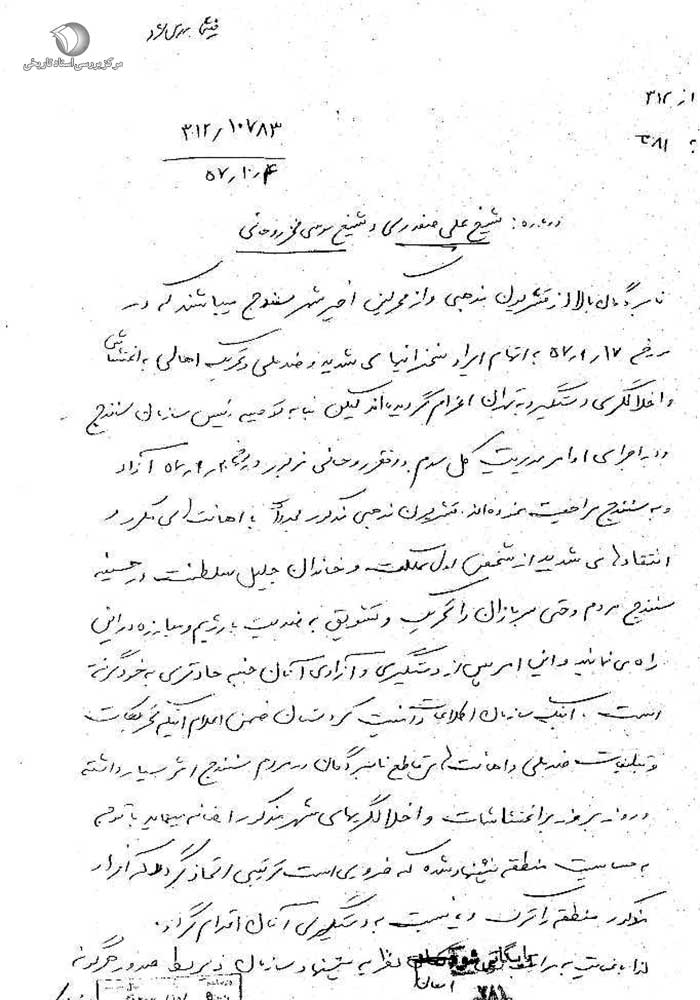 مرکز بررسی اسناد تاریخی
از ۳۱۲
۳۸۱
۳۱۲/۱۰۷۸۳
۵۷/۱۰/۴
درباره: شیخ علی صفدری و شیخ موسی فخر روحانی
نامبردگان بالا از قشریون مذهبی و از محرکین اخیر شهر سنندج میباشند که در
۵۷/۹/۱۷ به اتهام ایراد سخنرانیهای شدید و ضد ملی و تحریک اهالی به اغتشاش
و اخلالگری دستگیر و به تهران اعزام گردیده‌اند لیکن بنا به توصیه رئیس سازمان سنندج
و در اجرای اوامر مدیریت کل سوم دو نفر روحانی مزبور آزاد
و به سنندج مراجعت نموده‌اند. قشریون مذهبی مذکور مجدداً با اهانت‌های مکرر و
انتقادهای شدید از شخص اول مملکت و خاندان جلیل سلطنت در حسینیه
سنندج مردم و حتی سربازان را تحریک و تشویق به ضدیت با رژیم و مبارزه در این
راه می نمایند و این امر پس از دستگیری و آزادی آنان جنبه حادتری به خود گرفته
است. اینک سازمان اطلاعات و امنیت کردستان ضمن اعلام اینکه تحریکات
و تبلیغات ضد ملی و اهانت‌های قاطع نامبردگان در مردم سنندج اثر بسیار داشته
و روز بروز بر اغتشاشات و اخلالگریهای شهر مذکور اضافه مینماید با توجه
به حساسیت منطقه پیشنهاد شده که ضروری است ترتیبی اتخاذ گردد که افراد
مذکور منطقه را ترک و یا نسبت به دستگیری آنان اقدام گردد.
لذا با عنایت به مراتب پیشنهاد سازمان ذیربط صدور هرگونه